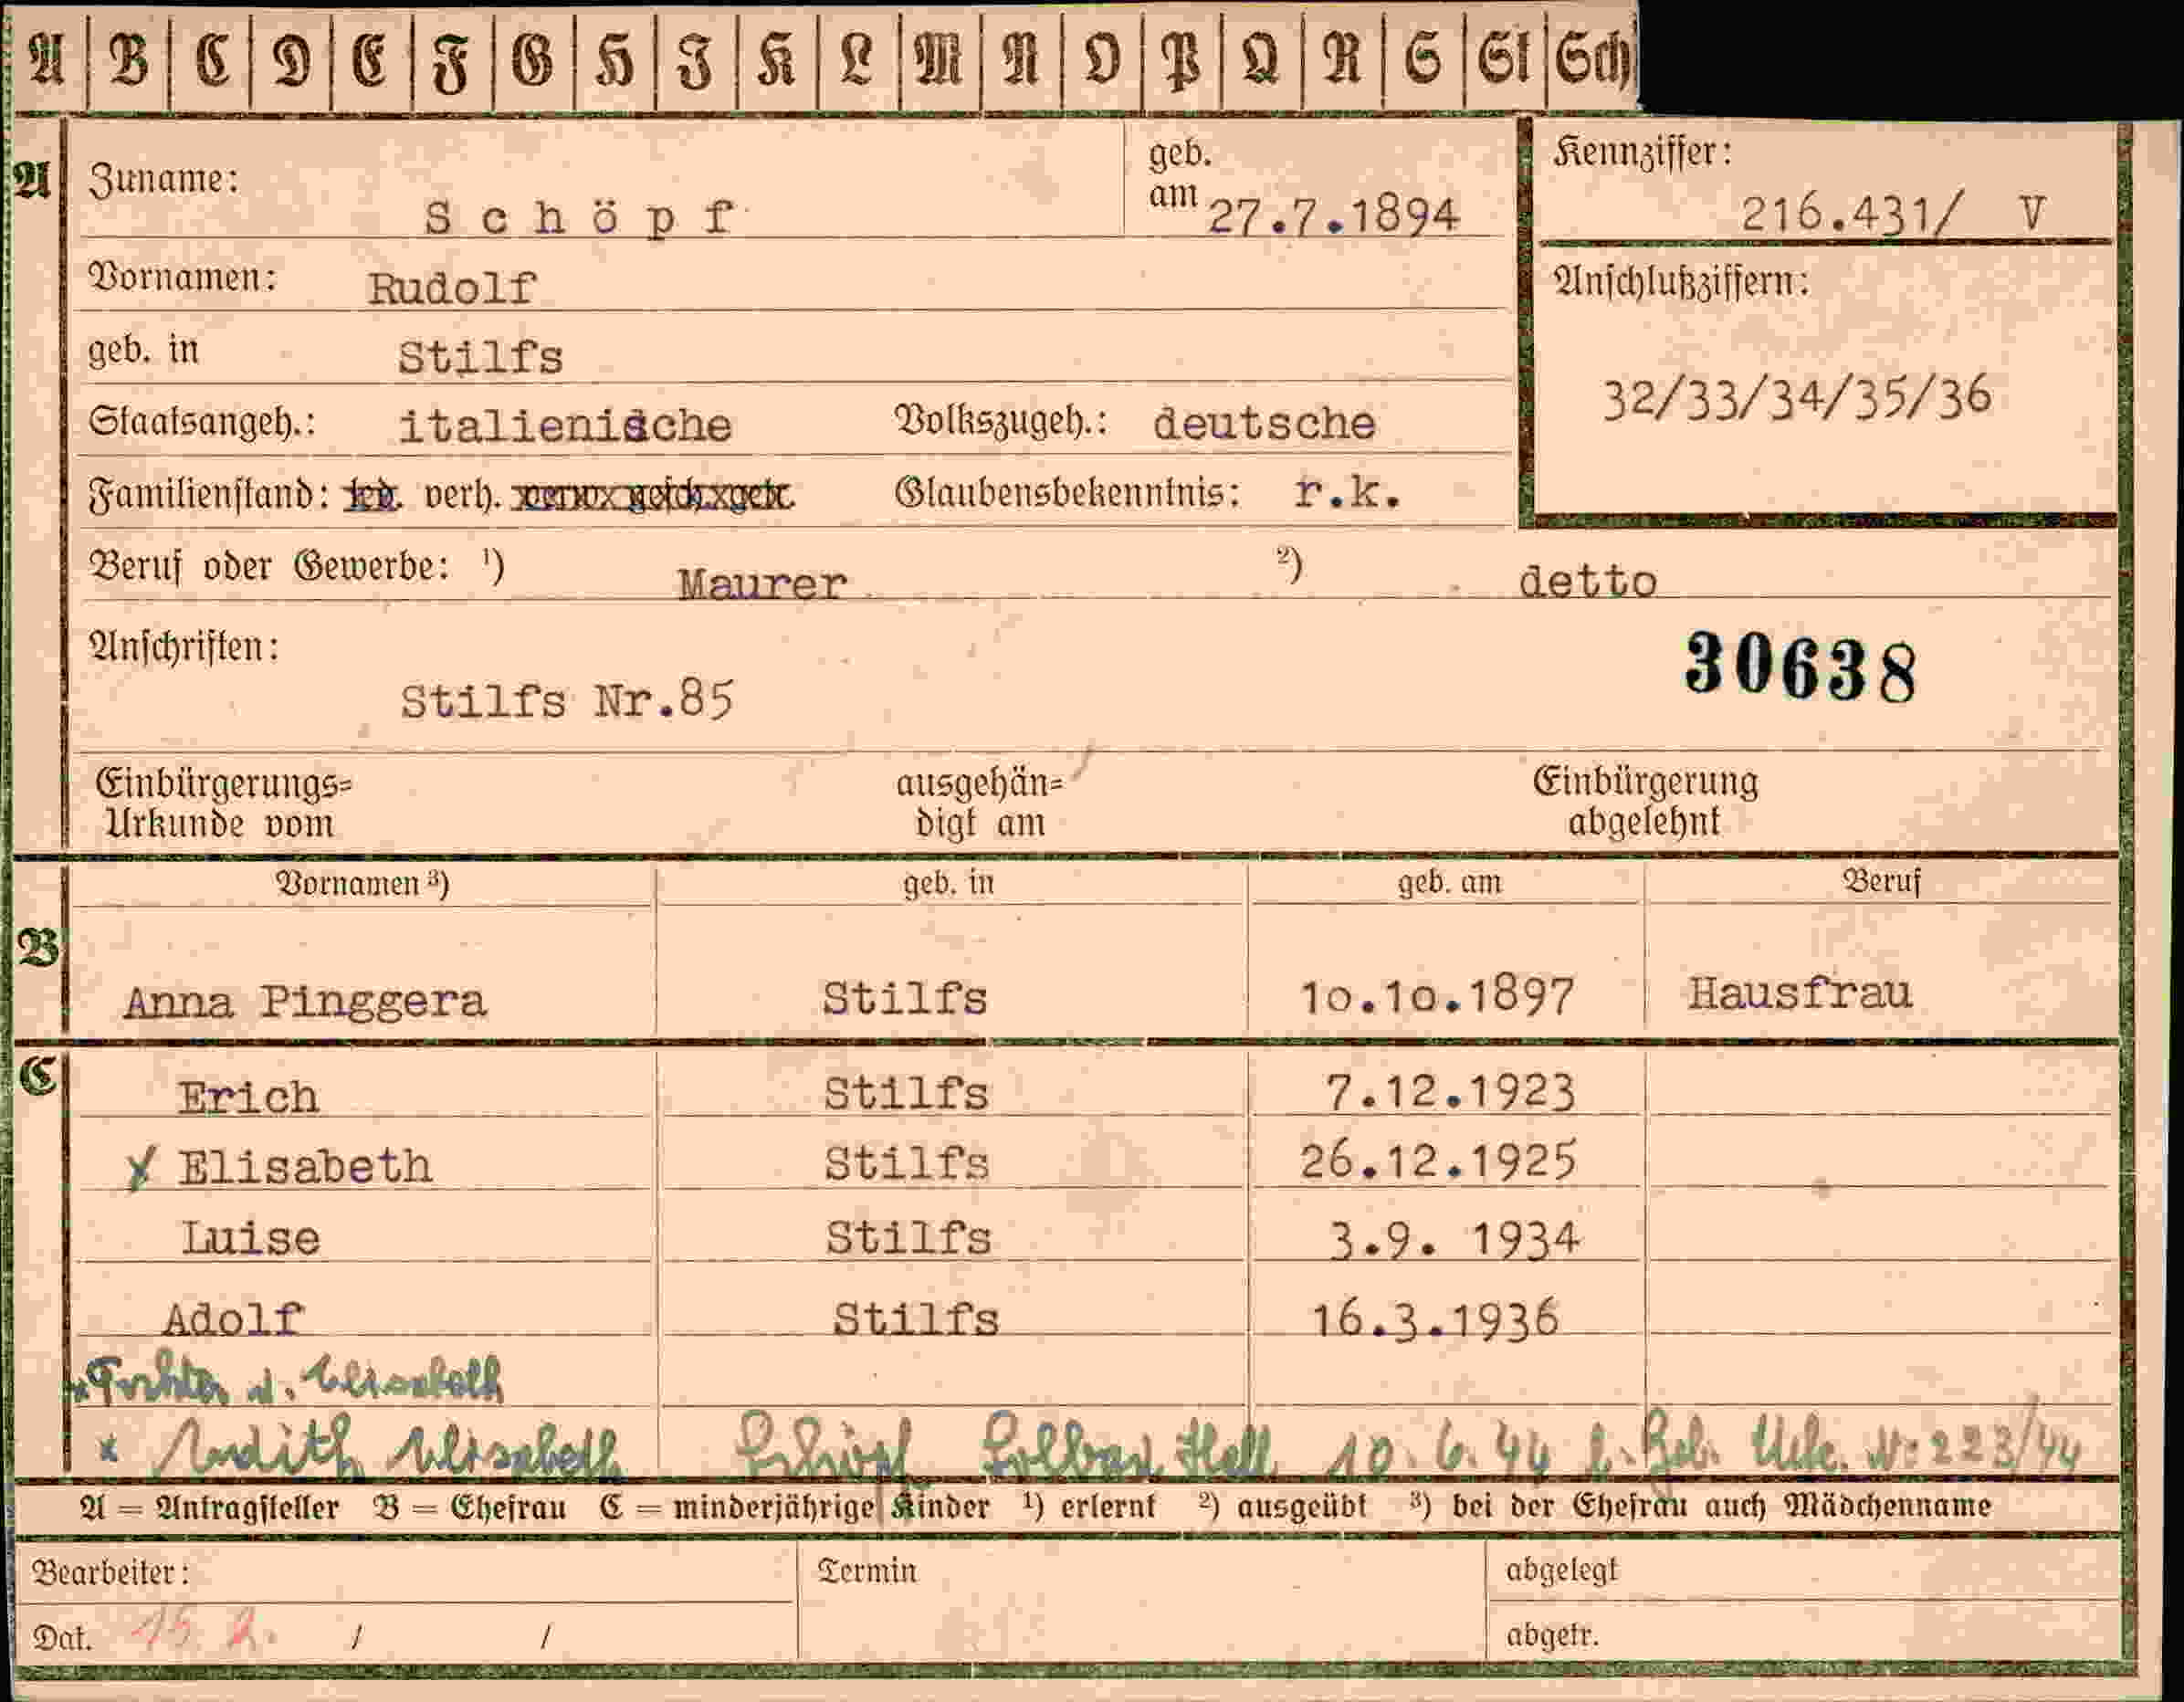 A B C D E F G H I K L M N O P Q R S St Sch
A
Zuname: Schöpf geb. am 27.7.1894
Kennziffer: 216.431/ V
Vornamen: Rudolf
Anschlußziffern:
geb. in Stilfs
32/33/34/35/36
Staatsangeh.: italienische Volkszugeh.: deutsche
Familienstand: led. verh. verw. gesch. getr. Glaubensbekenntnis: r.k.
Beruf oder Gewerbe: ¹) Maurer ²) detto
Anschriften: 30638
Stilfs Nr.85
Einbürgerungs= ausgehän= Einbürgerung
Urkunde vom digt am abgelehnt
Vornamen ³) geb. in geb. am Beruf
B
Anna Pinggera Stilfs 10.10.1897 Hausfrau
C
Erich Stilfs 7.12.1923
x Elisabeth Stilfs 26.12.1925
Luise Stilfs 3.9. 1934
Adolf Stilfs 16.3.1936
Tochter d. Elisabeth
x Judith Elisabeth Schöpf Solbad Hall 10.6.44 Geb. Urk. Nr 223/44
A = Antragsteller B = Ehefrau C = minderjährige Kinder ¹) erlernt ²) ausgeübt ³) bei der Ehefrau auch Mädchenname
Bearbeiter: Termin abgelegt
Dat. 15 2. / / abgetr.